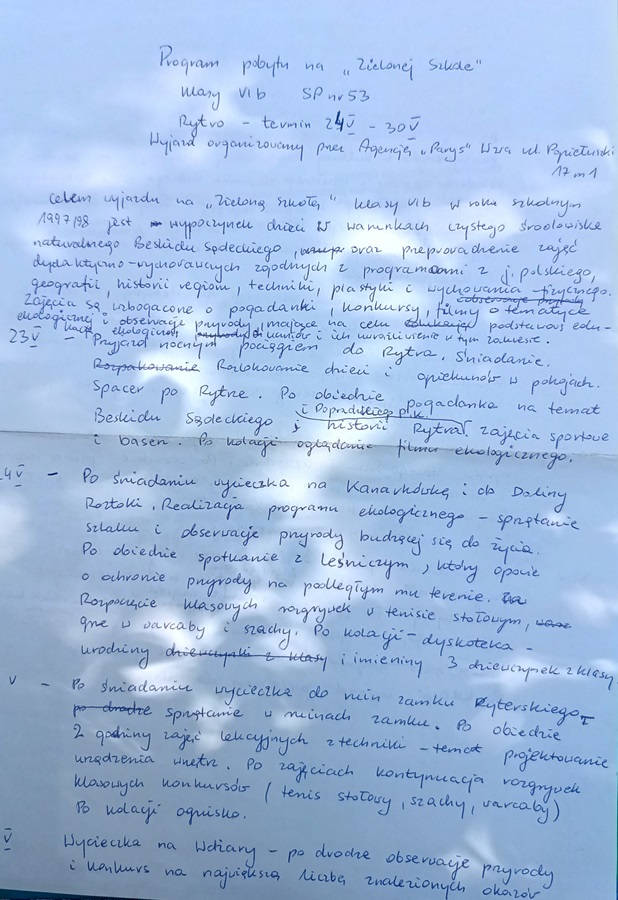 Program pobytu na „Zielonej Szkole"
klasy VI b SP nr 53
Rytro - termin 24 V - 30 V
Wyjazd organizowany przez Agencję „Parys" W-wa ul. Popiełuszki
17 m 1
Celem wyjazdu na „zieloną szkołę" klasy VI b w roku szkolnym
1997/98 jest wypoczynek dzieci w warunkach czystego środowiska
naturalnego Beskidu Sądeckiego, oraz przeprowadzenie zajęć
dydaktyczno-wychowawczych zgodnych z programami z j. polskiego,
geografii, historii regionu, techniki, plastyki i wychowania fizycznego.
Zajęcia są wzbogacone o pogadanki, konkursy, filmy o tematyce
ekologicznej i obserwacje przyrody mające na celu edukację podstawową edu-
kację ekologiczną uczniów i ich uwrażliwienie w tym zakresie.
23 V - Przyjazd nocnym pociągiem do Rytra. Śniadanie.
Rozpakowanie Rozlokowanie dzieci i opiekunów w pokojach.
Spacer po Rytrze. Po obiedzie pogadanka na temat
i Popradzkiego p.k.
Beskidu Sądeckiego, historii Rytra. zajęcia sportowe
i basen. Po kolacji oglądanie filmu ekologicznego.
4 V - Po śniadaniu wycieczka na Kanarkówkę i do Doliny
Roztoki. Realizacja programu ekologicznego - sprzątanie
szlaku i obserwacje przyrody budzącej się do życia.
Po obiedzie spotkanie z Leśniczym, który opowie
o ochronie przyrody na podległym mu terenie.
Rozpoczęcie klasowych rozgrywek w tenisie stołowym,
grze w warcaby i szachy. Po kolacji - dyskoteka -
urodziny dziewczynki z klasy i imieniny 3 dziewczynek z klasy.
V - Po śniadaniu wycieczka do ruin zamku Ryterskiego -
po drodze sprzątanie w ruinach zamku. Po obiedzie
2 godziny zajęć lekcyjnych z techniki - temat projektowanie
urządzenia wnętrz. Po zajęciach kontynuacja rozgrywek
klasowych konkursów (tenis stołowy, szachy, warcaby)
Po kolacji ognisko.
V Wycieczka na Wdżary - po drodze obserwacje przyrody
i konkurs na największą liczbę znalezionych okazów